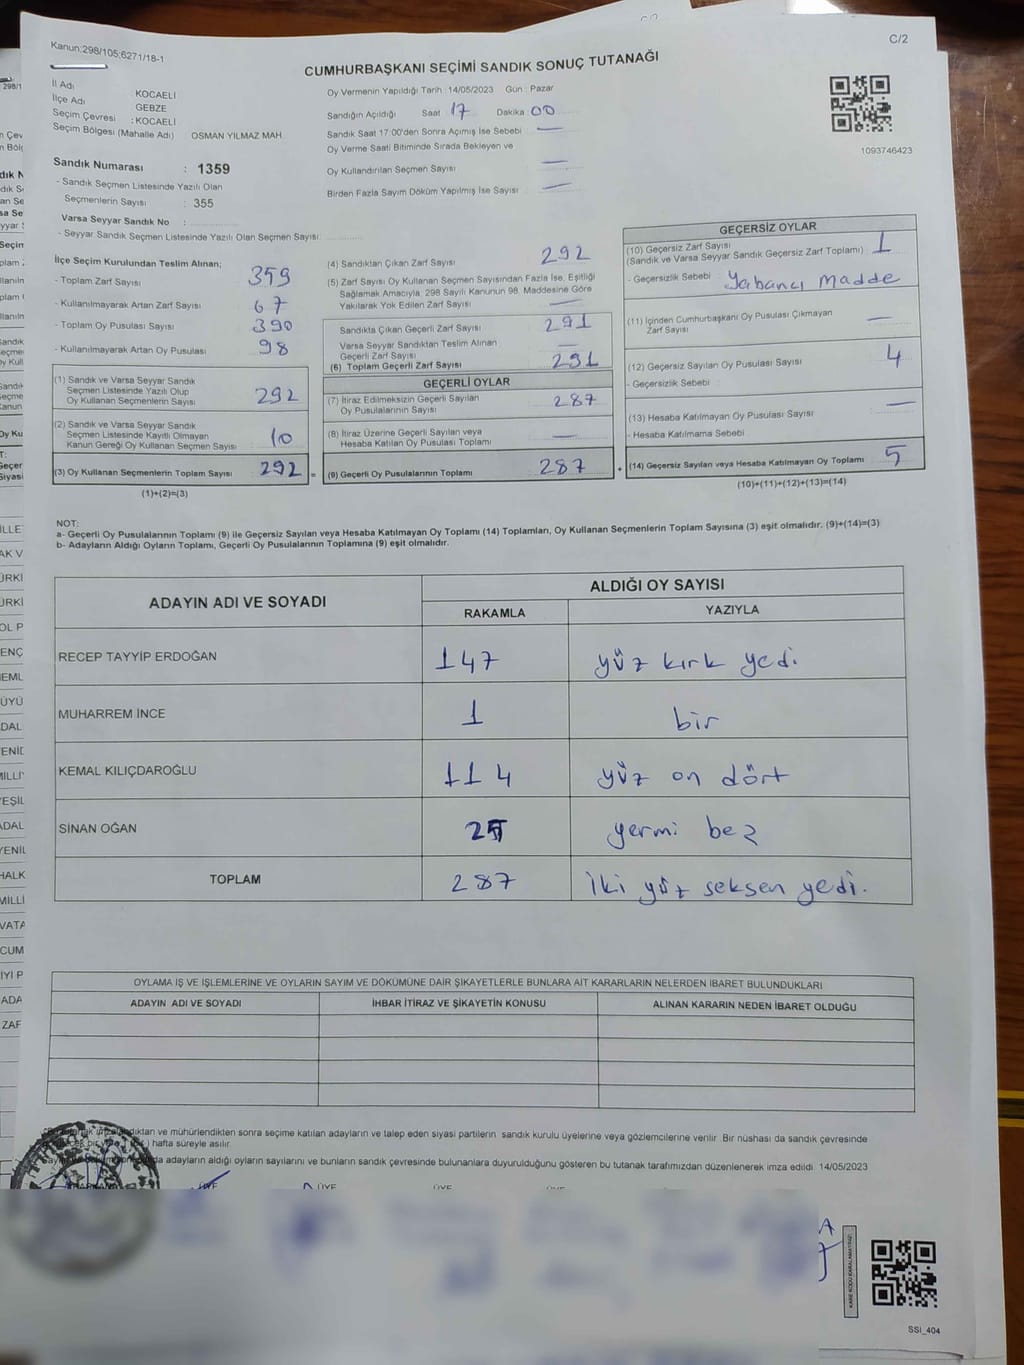 C/2
Kanun:298/105;6271/18-1
CUMHURBAŞKANI SEÇİMİ SANDIK SONUÇ TUTANAĞI
İl Adı KOCAELİ
İlçe Adı GEBZE
Seçim Çevresi : KOCAELİ
Seçim Bölgesi (Mahalle Adı) OSMAN YILMAZ MAH
Sandık Numarası : 1359
- Sandık Seçmen Listesinde Yazılı Olan
Seçmenlerin Sayısı : 355
Varsa Seyyar Sandık No :
- Seyyar Sandık Seçmen Listesinde Yazılı Olan Seçmen Sayısı:
Oy Vermenin Yapıldığı Tarih :14/05/2023 Gün : Pazar
Sandığın Açıldığı Saat 17 Dakika 00
Sandık Saat 17:00'den Sonra Açımış İse Sebebi —
Oy Verme Saati Bitiminde Sırada Bekleyen ve
Oy Kullandırılan Seçmen Sayısı —
Birden Fazla Sayım Döküm Yapılmış İse Sayısı —
1093746423
İlçe Seçim Kurulundan Teslim Alınan;
- Toplam Zarf Sayısı 359
- Kullanılmayarak Artan Zarf Sayısı 67
- Toplam Oy Pusulası Sayısı 390
- Kullanılmayarak Artan Oy Pusulası 98
(1) Sandık ve Varsa Seyyar Sandık
Seçmen Listesinde Yazılı Olup
Oy Kullanan Seçmenlerin Sayısı 292
(2) Sandık ve Varsa Seyyar Sandık
Seçmen Listesinde Kayıtlı Olmayan
Kanun Gereği Oy Kullanan Seçmen Sayısı 10
(3) Oy Kullanan Seçmenlerin Toplam Sayısı 292 =
(1)+(2)=(3)
(4) Sandıktan Çıkan Zarf Sayısı 292
(5) Zarf Sayısı Oy Kullanan Seçmen Sayısından Fazla İse, Eşitliği
Sağlamak Amacıyla, 298 Sayılı Kanunun 98. Maddesine Göre
Yakılarak Yok Edilen Zarf Sayısı —
Sandıkta Çıkan Geçerli Zarf Sayısı 291
Varsa Seyyar Sandıktan Teslim Alınan
Geçerli Zarf Sayısı —
(6) Toplam Geçerli Zarf Sayısı 291
GEÇERLİ OYLAR
(7) İtiraz Edilmeksizin Geçerli Sayılan
Oy Pusulalarının Sayısı 287
(8) İtiraz Üzerine Geçerli Sayılan veya
Hesaba Katılan Oy Pusulası Toplamı —
(9) Geçerli Oy Pusulalarının Toplamı 287 +
GEÇERSİZ OYLAR
(10) Geçersiz Zarf Sayısı 1
(Sandık ve Varsa Seyyar Sandık Geçersiz Zarf Toplamı)
- Geçersizlik Sebebi : Yabancı Madde
(11) İçinden Cumhurbaşkanı Oy Pusulası Çıkmayan
Zarf Sayısı —
(12) Geçersiz Sayılan Oy Pusulası Sayısı 4
- Geçersizlik Sebebi :
(13) Hesaba Katılmayan Oy Pusulası Sayısı —
- Hesaba Katılmama Sebebi :
(14) Geçersiz Sayılan veya Hesaba Katılmayan Oy Toplamı 5
(10)+(11)+(12)+(13)=(14)
NOT:
a- Geçerli Oy Pusulalarının Toplamı (9) ile Geçersiz Sayılan veya Hesaba Katılmayan Oy Toplamı (14) Toplamları, Oy Kullanan Seçmenlerin Toplam Sayısına (3) eşit olmalıdır. (9)+(14)=(3)
b- Adayların Aldığı Oyların Toplamı, Geçerli Oy Pusulalarının Toplamına (9) eşit olmalıdır.
ADAYIN ADI VE SOYADI ALDIĞI OY SAYISI
RAKAMLA YAZIYLA
RECEP TAYYİP ERDOĞAN 147 yüz kırk yedi
MUHARREM İNCE 1 bir
KEMAL KILIÇDAROĞLU 114 yüz on dört
SİNAN OĞAN 25 yermi beş
TOPLAM 287 iki yüz seksen yedi.
OYLAMA İŞ VE İŞLEMLERİNE VE OYLARIN SAYIM VE DÖKÜMÜNE DAİR ŞİKAYETLERLE BUNLARA AİT KARARLARIN NELERDEN İBARET BULUNDUKLARI
ADAYIN ADI VE SOYADI İHBAR İTİRAZ VE ŞİKAYETİN KONUSU ALINAN KARARIN NEDEN İBARET OLDUĞU
ve mühürlendikten sonra seçime katılan adayların ve talep eden siyasi partilerin sandık kurulu üyelerine veya gözlemcilerine verilir. Bir nüshası da sandık çevresinde
hafta süreyle asılır.
adayların aldığı oyların sayılarını ve bunların sandık çevresinde bulunanlara duyurulduğunu gösteren bu tutanak tarafımızdan düzenlenerek imza edildi. 14/05/2023
ÜYE ÜYE ÜYE ÜYE
SSI_404